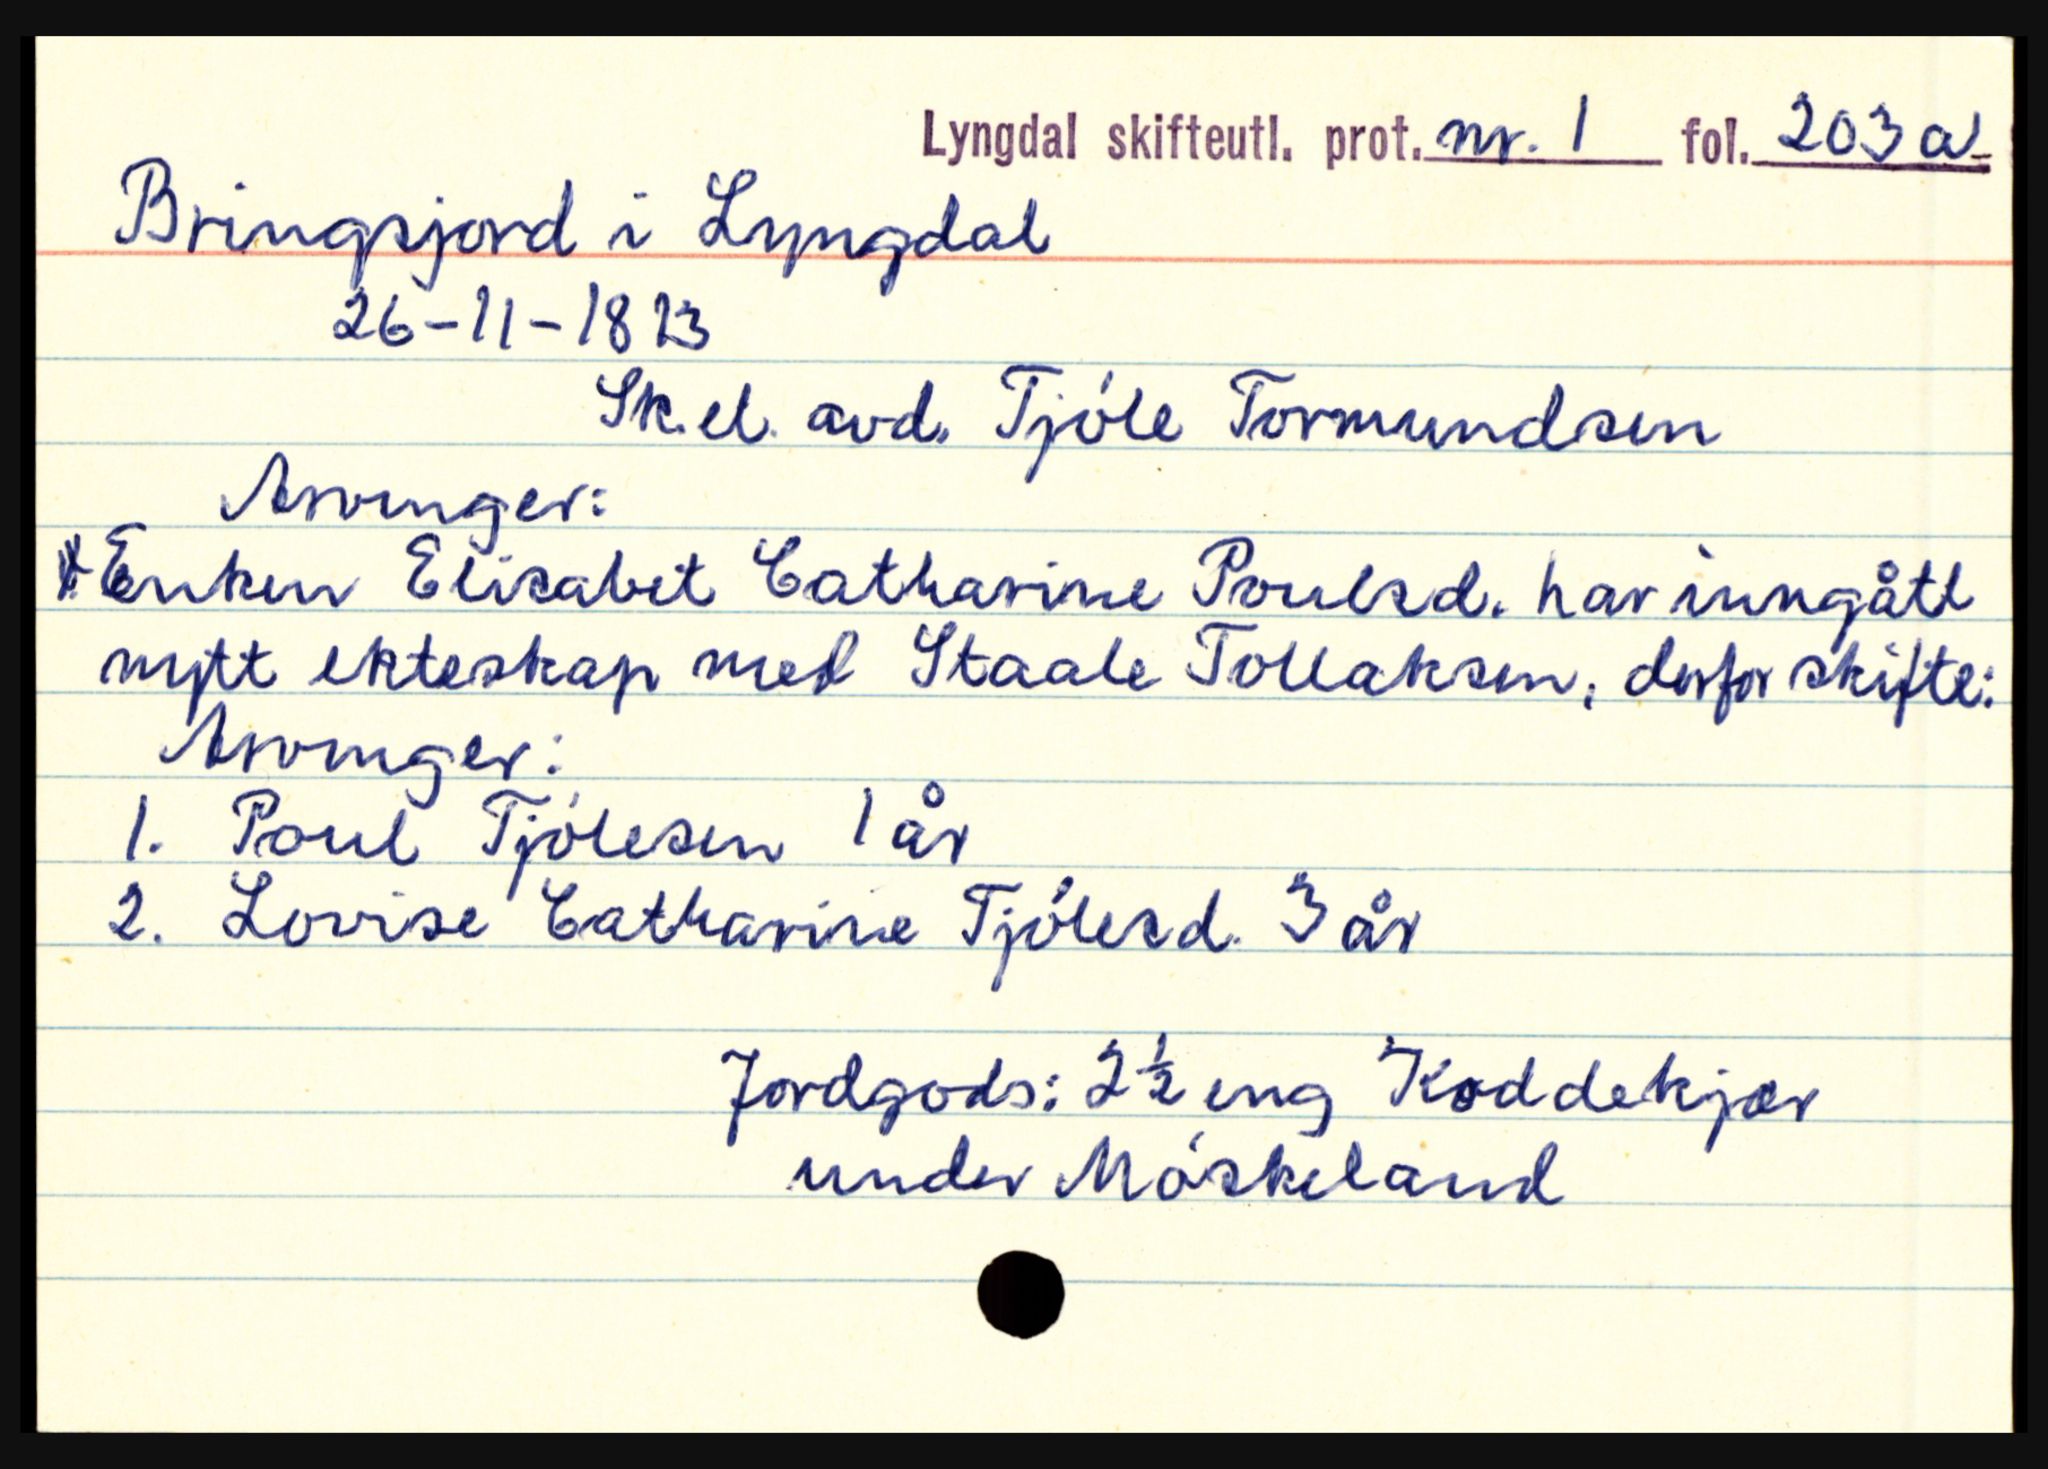 Lyngdal skifteutl. prot. nr. 1 fol. 203 a
Bringsjord i Lyngdal
26-11-1823
Sk.el. avd. Tjóle Tormundsen
Arvinger:
Enken Elisabet Catharine Poulsd. har inngått
nytt ekteskap med Staale Tollaksen, derfor skifte:
Arvinger:
1. Poul Tjólesen 1 år
2. Lovise Catharine Tjólesd. 3 år
Jordgods: 2 1/2 eng Koddekjær
under Móskeland